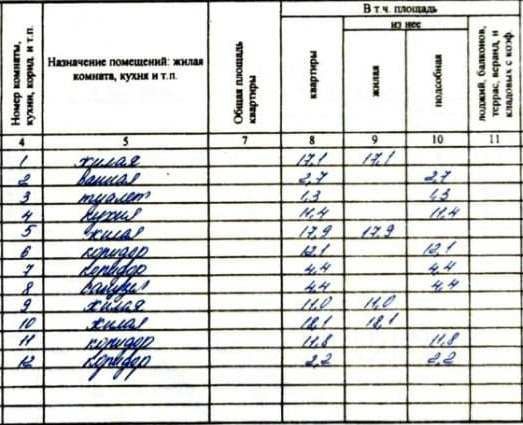 Номер комнаты, кухни, корид. и т.п.
Назначение помещений: жилая комната, кухня и т.п.
Общая площадь квартиры
В т ч. площадь
из нее
квартиры
жилая
подсобная
лоджий, балконов, террас, веранд, и кладовых с коэф.
4 5 7 8 9 10 11
1 жилая 17,1 17,1
2 ванная 2,7 2,7
3 туалет 1,3 1,3
4 кухня 11,4 11,4
5 жилая 17,9 17,9
6 коридор 12,1 12,1
7 коридор 4,4 4,4
8 санузел 4,4 4,4
9 жилая 11,0 11,0
10 жилая 18,1 18,1
11 коридор 11,8 11,8
12 коридор 2,2 2,2